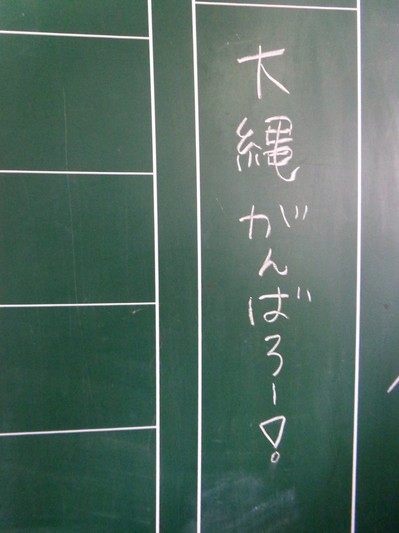 大縄がんばろー!